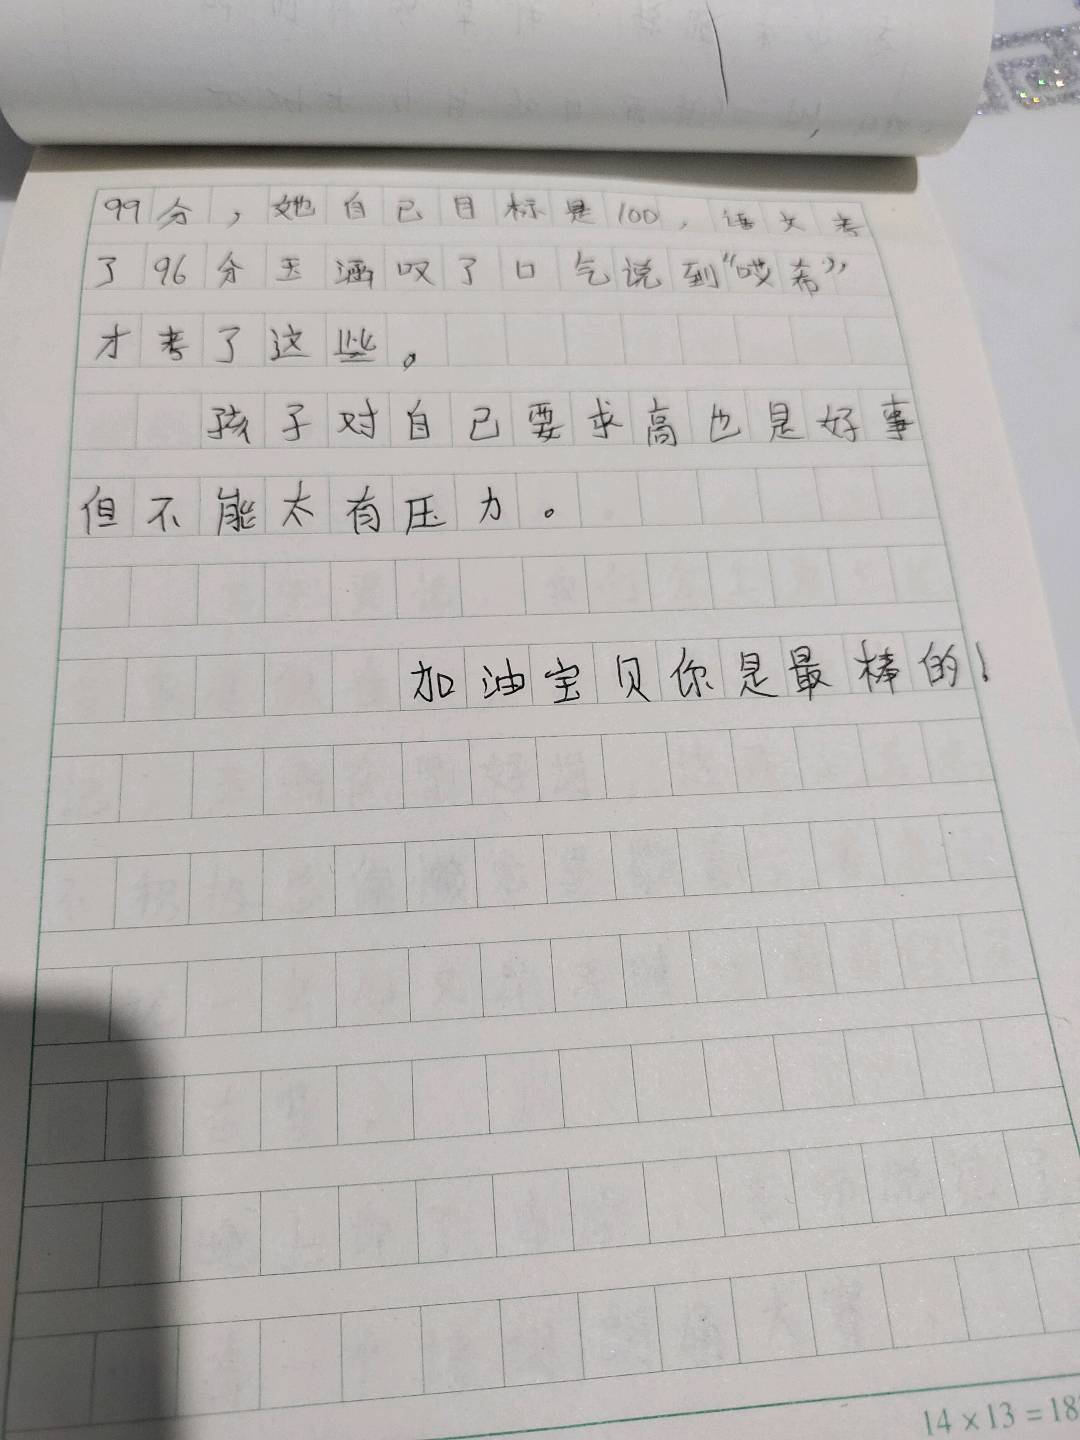 99分，她自己目标是100，语文考
了96分玉涵叹了口气说到“哎希”
才考了这些。
孩子对自己要求高也是好事
但不能太有压力。
加油宝贝你是最棒的！
14×13=18